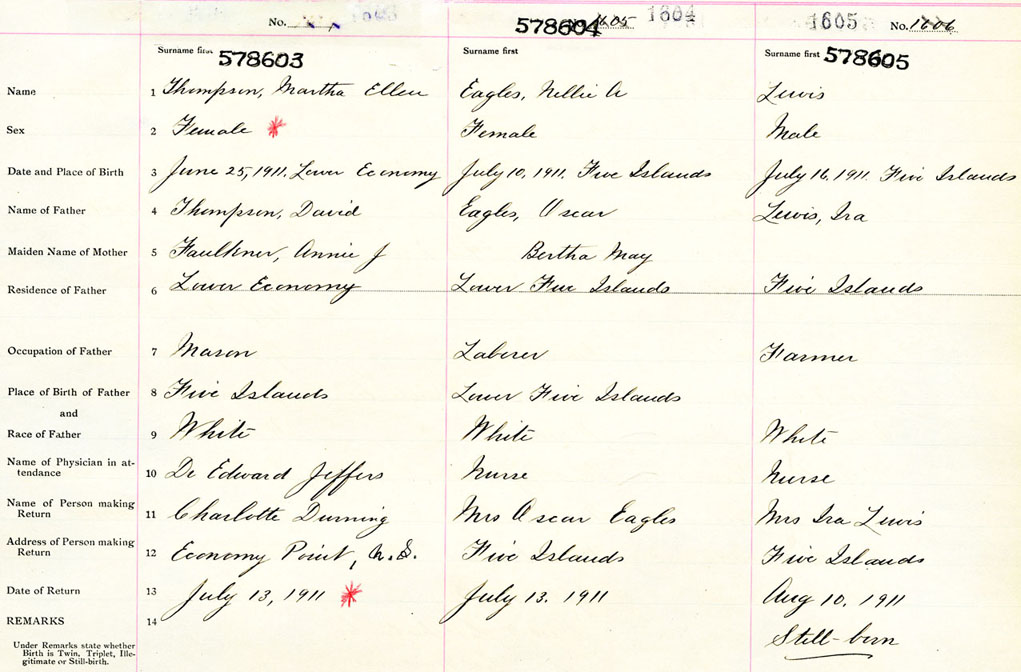 No. 1603 578604 1605 1604 1605 No. 1606
Surname first 578603 Surname first Surname first 578605
Name 1 Thompson, Martha Ellen Eagles, Nellie A Lewis
Sex 2 Female Female Male
Date and Place of Birth 3 June 25, 1911, Lower Economy July 10, 1911. Five Islands July 16, 1911. Five Islands
Name of Father 4 Thompson, David Eagles, Oscar Lewis, Ira
Maiden Name of Mother 5 Faulkner, Annie J Bertha May
Residence of Father 6 Lower Economy Lower Five Islands Five Islands
Occupation of Father 7 Mason Laborer Farmer
Place of Birth of Father 8 Five Islands Lower Five Islands
and
Race of Father 9 White White White
Name of Physician in at-
tendance 10 Dr Edward Jeffers Nurse Nurse
Name of Person making
Return 11 Charlotte Durning Mrs Oscar Eagles Mrs Ira Lewis
Address of Person making
Return 12 Economy Point, N.S. Five Islands Five Islands
Date of Return 13 July 13, 1911 July 13. 1911 Aug 10. 1911
REMARKS 14 Still-born
Under Remarks state whether
Birth is Twin, Triplet, Ille-
gitimate or Still-birth.